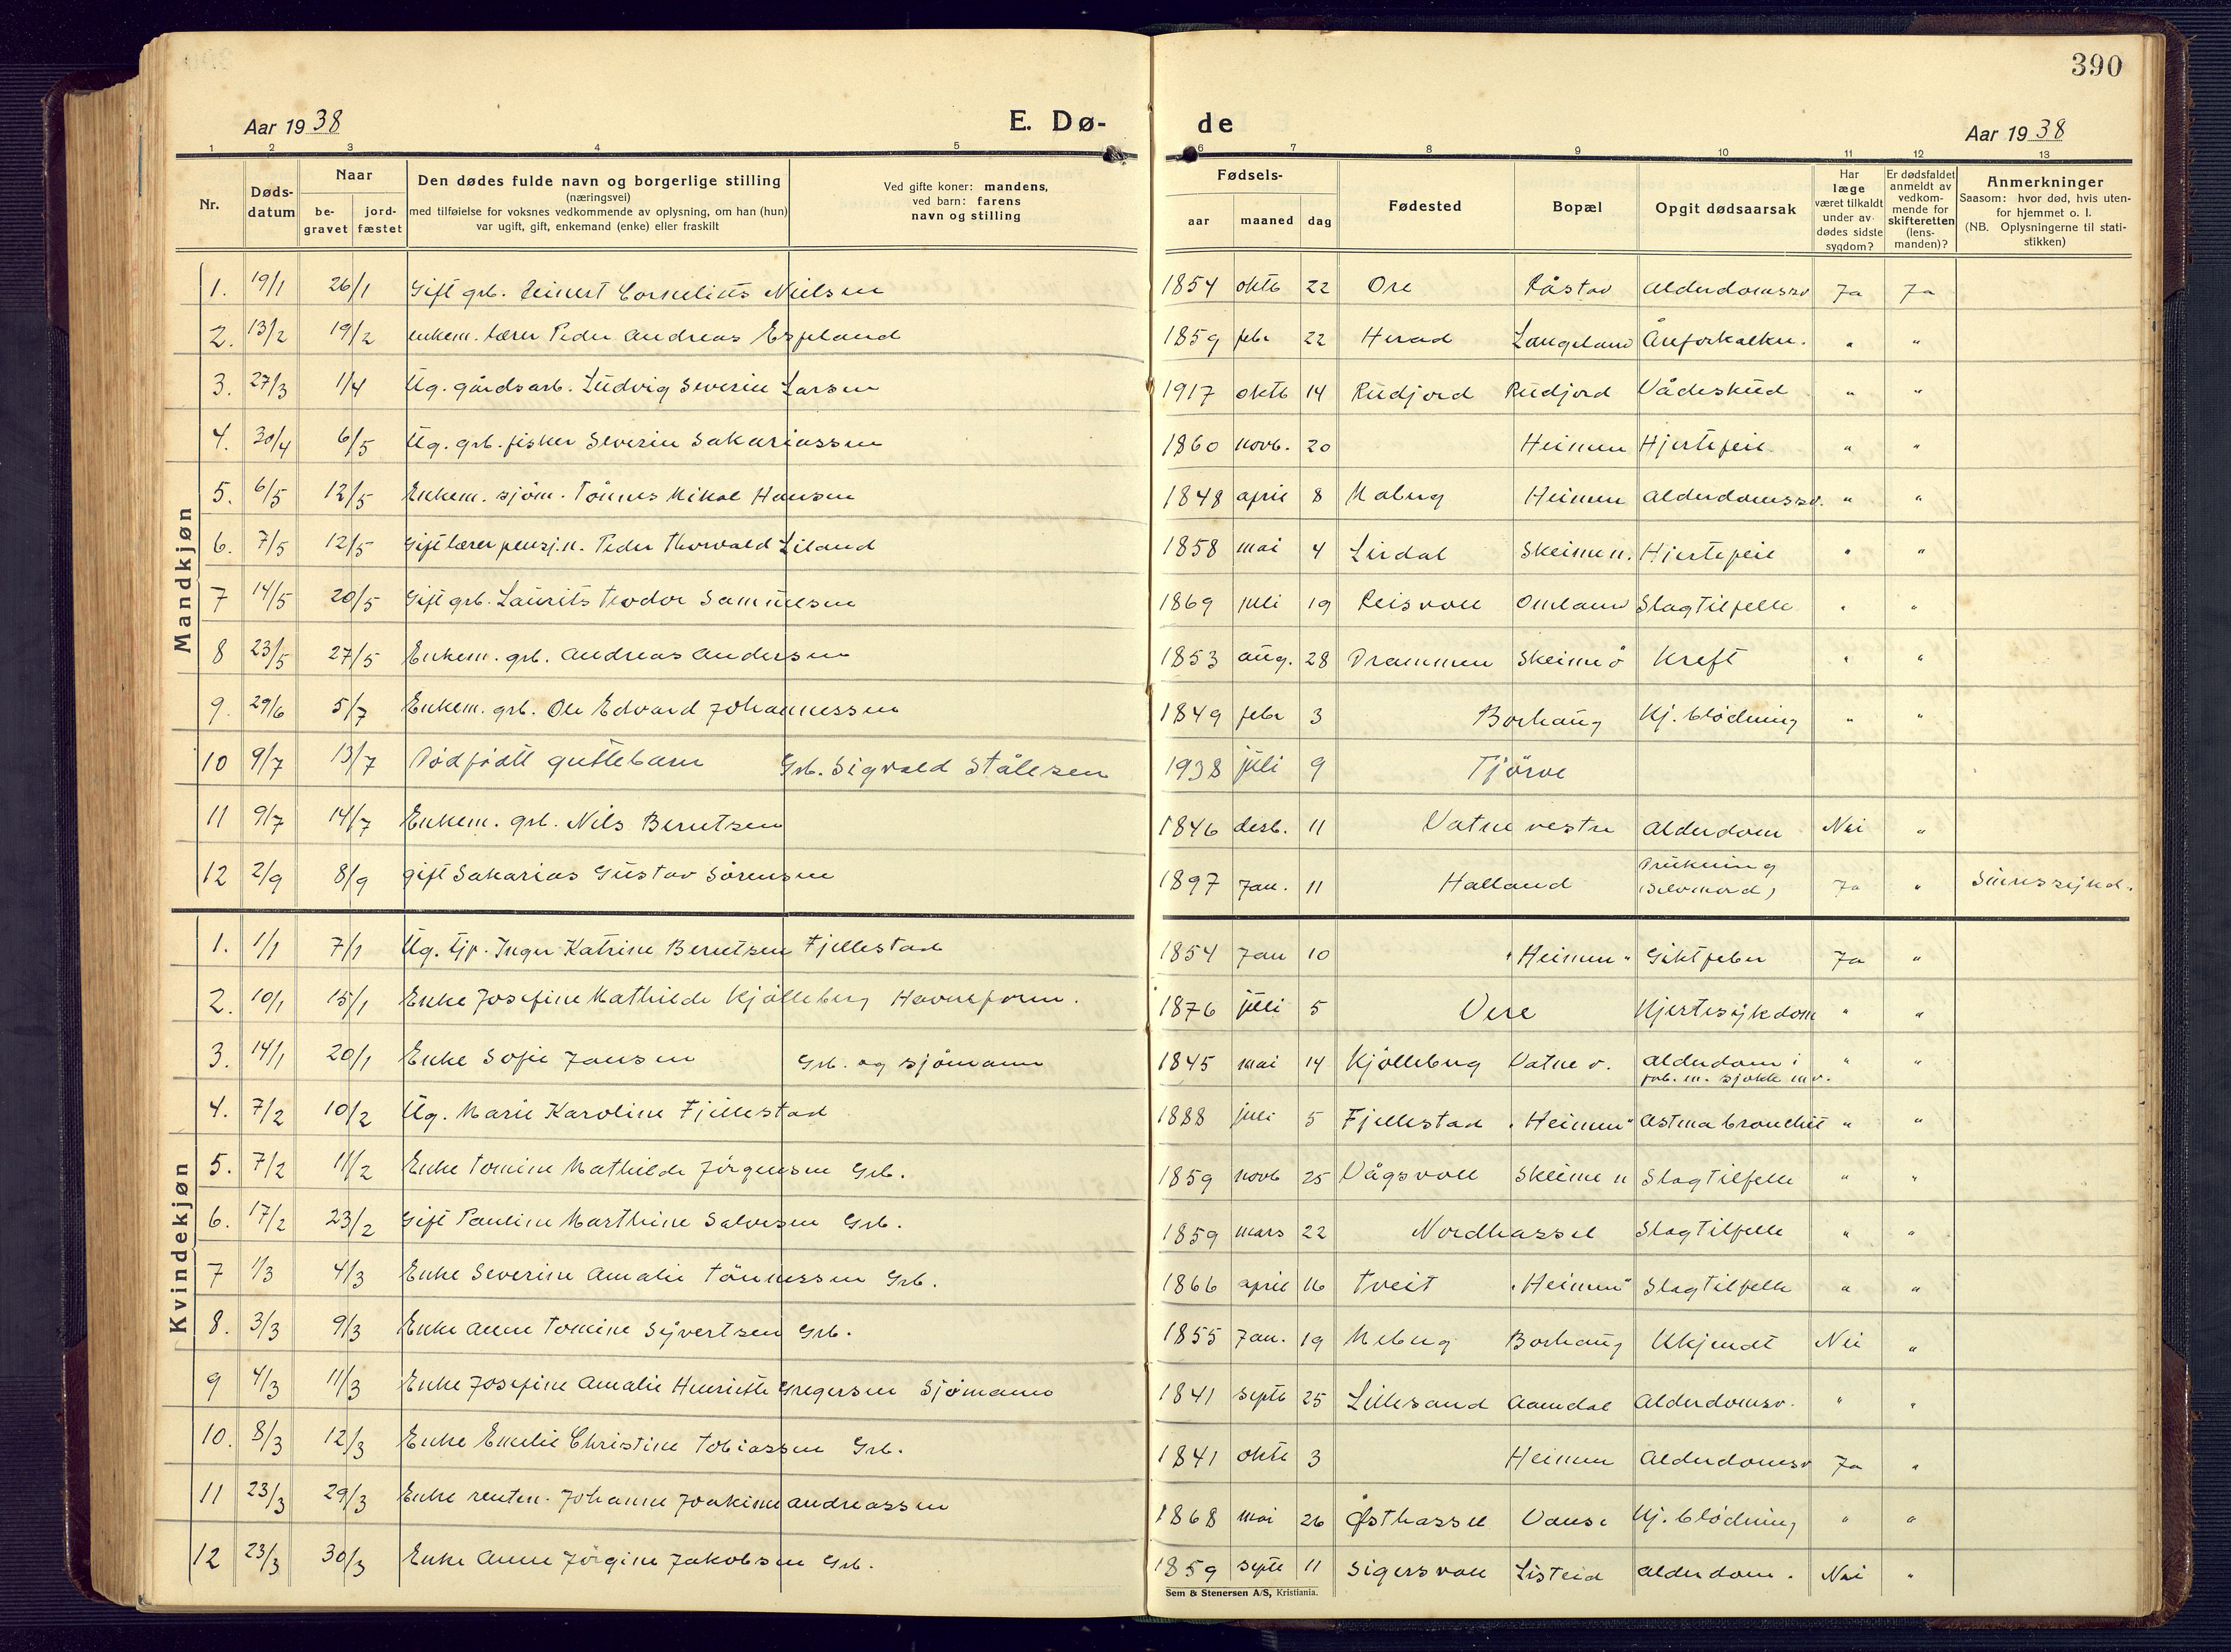 390
Aar 1938 E. Dø- de Aar 1938
1 2 3 4 5 6 7 8 9 10 11 12 13
Nr. Døds-datum Naar be-gravet jord-fæstet Den dødes fulde navn og borgerlige stilling (næringsvei) med tilføielse for voksnes vedkommende av oplysning, om han (hun) var ugift, gift, enkemand (enke) eller fraskilt Ved gifte koner: mandens, ved barn: farens navn og stilling Fødsels- aar maaned dag Fødested Bopæl Opgit dødsaarsak Har læge været tilkaldt under av-dødes sidste sygdom? Er dødsfaldet anmeldt av vedkom-mende for skifteretten (lens-manden)? Anmerkninger Saasom: hvor død, hvis uten-for hjemmet o. l. (NB. Oplysningerne til stati-stikken)
Mandkjøn
1. 19/1 26/1 Gift grb. Reinert Cornelius Nielsen 1854 oktb 22 Ore Råstad Alderdomssv Ja Ja
2. 13/2 19/2 enkem. lærer Peder Andreas Espeland 1859 febr 22 Herad Langeland Åreforkalkn. " "
3. 27/3 1/4 Ug. gårdsarb. Ludvig Severin Larsen 1917 oktb 14 Rudjord Rudjord Vådeskud " "
4. 30/4 6/5 Ug. grb. fisker Severin Sakariassen 1860 novb. 20 Heimen Hjertefeil " "
5. 6/5 12/5 Enkem. sjøm. Tönnes Mikal Hansen 1848 april 8 Maberg Heimen Alderdomssv. " "
6. 7/5 12/5 Gift lærer pensj.n. Peder Thorvald Liland 1858 mai 4 Lindal Skeime n. Hjertefeil " "
7 14/5 20/5 Gift grb. Laurits Teodor Samuelsen 1869 juli 19 Reisvoll Omland Slagtilfelle " "
8 23/5 27/5 Enkem. grb. Andreas Andersen 1853 aug. 28 Drammen Skeime ö Kreft " "
9. 29/6 5/7 Enkem. grb. Ole Edvard Johannessen 1849 febr 3 Borhaug Hj. blödning " "
10 9/7 13/7 Dødfødt guttebarn Grb. Sigvald Stålesen 1938 juli 9 Tjörve
11 9/7 14/7 Enkem. grb. Nils Berntsen 1846 desb. 11 Vatne vestre Alderdom Nei "
12 2/9 8/9 gift Sakarias Gustav Sörensen 1897 Jan. 11 Halland Drukning (Selvmord) Ja " Sinnssykd.
Kvindekjøn
1. 1/1 7/1 Ug. tjp. Inger Katrine Berntsen Fjellestad 1854 Jan 10 "Heimen" Giktfeber Ja "
2. 10/1 15/1 Enke Josefine Mathilde Kjölleberg Havneform. 1876 juli 5 Vere Hjertesykdom " "
3. 14/1 20/1 Enke Sofie Jansen Grb. og sjömann 1845 mai 14 Kjölleberg Vatne v. Alderdom i forb. m. sjokk m v. " "
4. 7/2 10/2 Ug. Marie Karoline Fjellestad 1888 juli 5 Fjellestad "Heimen" Astma bronchit " "
5. 7/2 11/2 Enke Tomine Mathilde Jörgensen Grb. 1859 novb 25 Vågsvoll Skeime n Slagtilfelle " "
6. 17/2 23/2 Gift Pauline Marthine Salvesen Grb. 1859 mars 22 Nordhassel Slagtilfelle " "
7 1/3 4/3 Enke Severine Amalie Tönnessen Grb. 1866 april 16 Tveit "Heimen" Slagtilfelle " "
8. 3/3 9/3 Enke Anne Tomine Syvertsen Grb. 1855 Jan. 19 Meberg Borhaug Ukjendt Nei "
9 4/3 11/3 Enke Josefine Amalie Henriette Gregersen Sjømann 1841 septb 25 Lillesand Aamdal Alderdomsv. " "
10. 8/3 12/3 Enke Emelie Christine Tobiassen Grb. 1841 oktb 3 Heimen Alderdomsv Ja "
11 23/3 29/3 Enke renten. Johanne Joakime Andreassen 1868 mai 26 Østhassel Vanse Hj. blödning " "
12 23/3 30/3 Enke Anne Jörgine Jakobsen Grb. 1859 septb 11 Sigersvoll Listeid Alderdom. Nei "
Sem & Stenersen A/S, Kristiania.